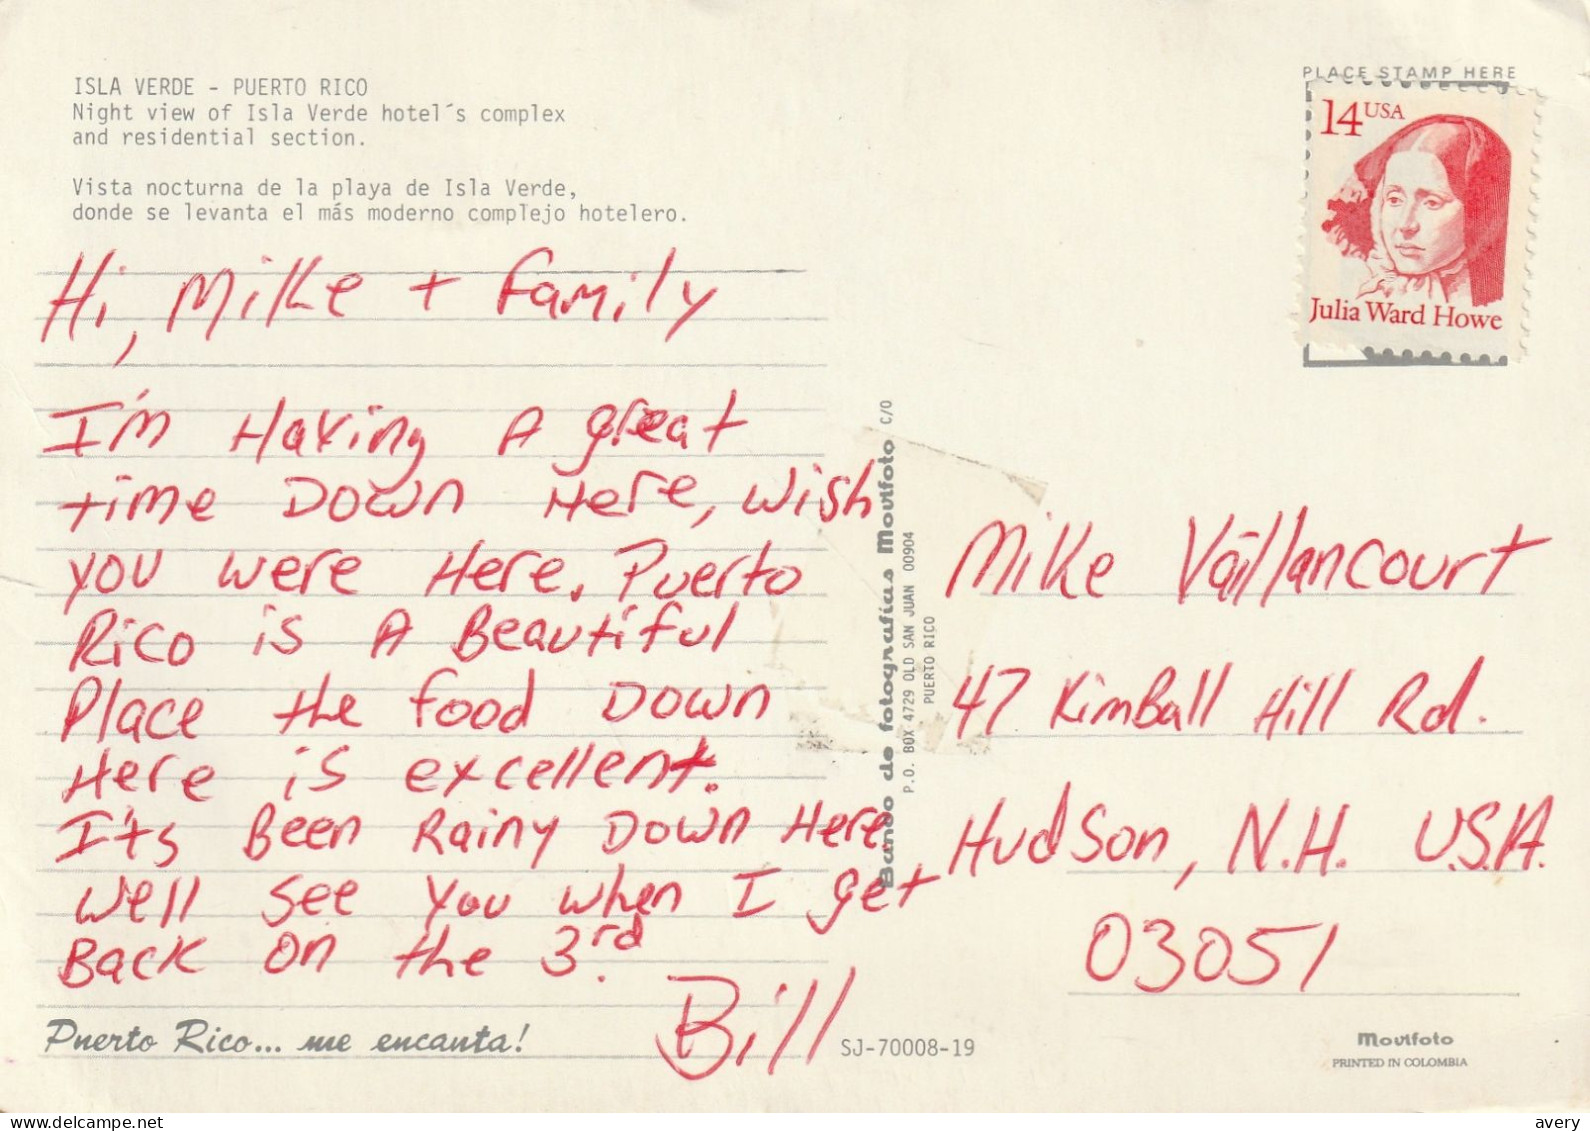 ISLA VERDE - PUERTO RICO
Night view of Isla Verde hotel´s complex
and residential section.
Vista nocturna de la playa de Isla Verde,
donde se levanta el más moderno complejo hotelero.
PLACE STAMP HERE
14 USA
Julia Ward Howe
Hi, Mike + Family
I'm Having A great
time Down Here, wish
you were Here. Puerto
Rico is A Beautiful
Place the food Down
Here is excellent.
It's Been Rainy Down Here
Well see you when I get
Back on the 3rd.
Bill
Banco de fotografías Movifoto C/O
P.O. BOX 4729 OLD SAN JUAN 00904
PUERTO RICO
Mike Vaillancourt
47 Kimball Hill Rd.
Hudson, N.H. U.S.A.
03051
Puerto Rico... me encanta!
SJ-70008-19
Movifoto
PRINTED IN COLOMBIA
avery